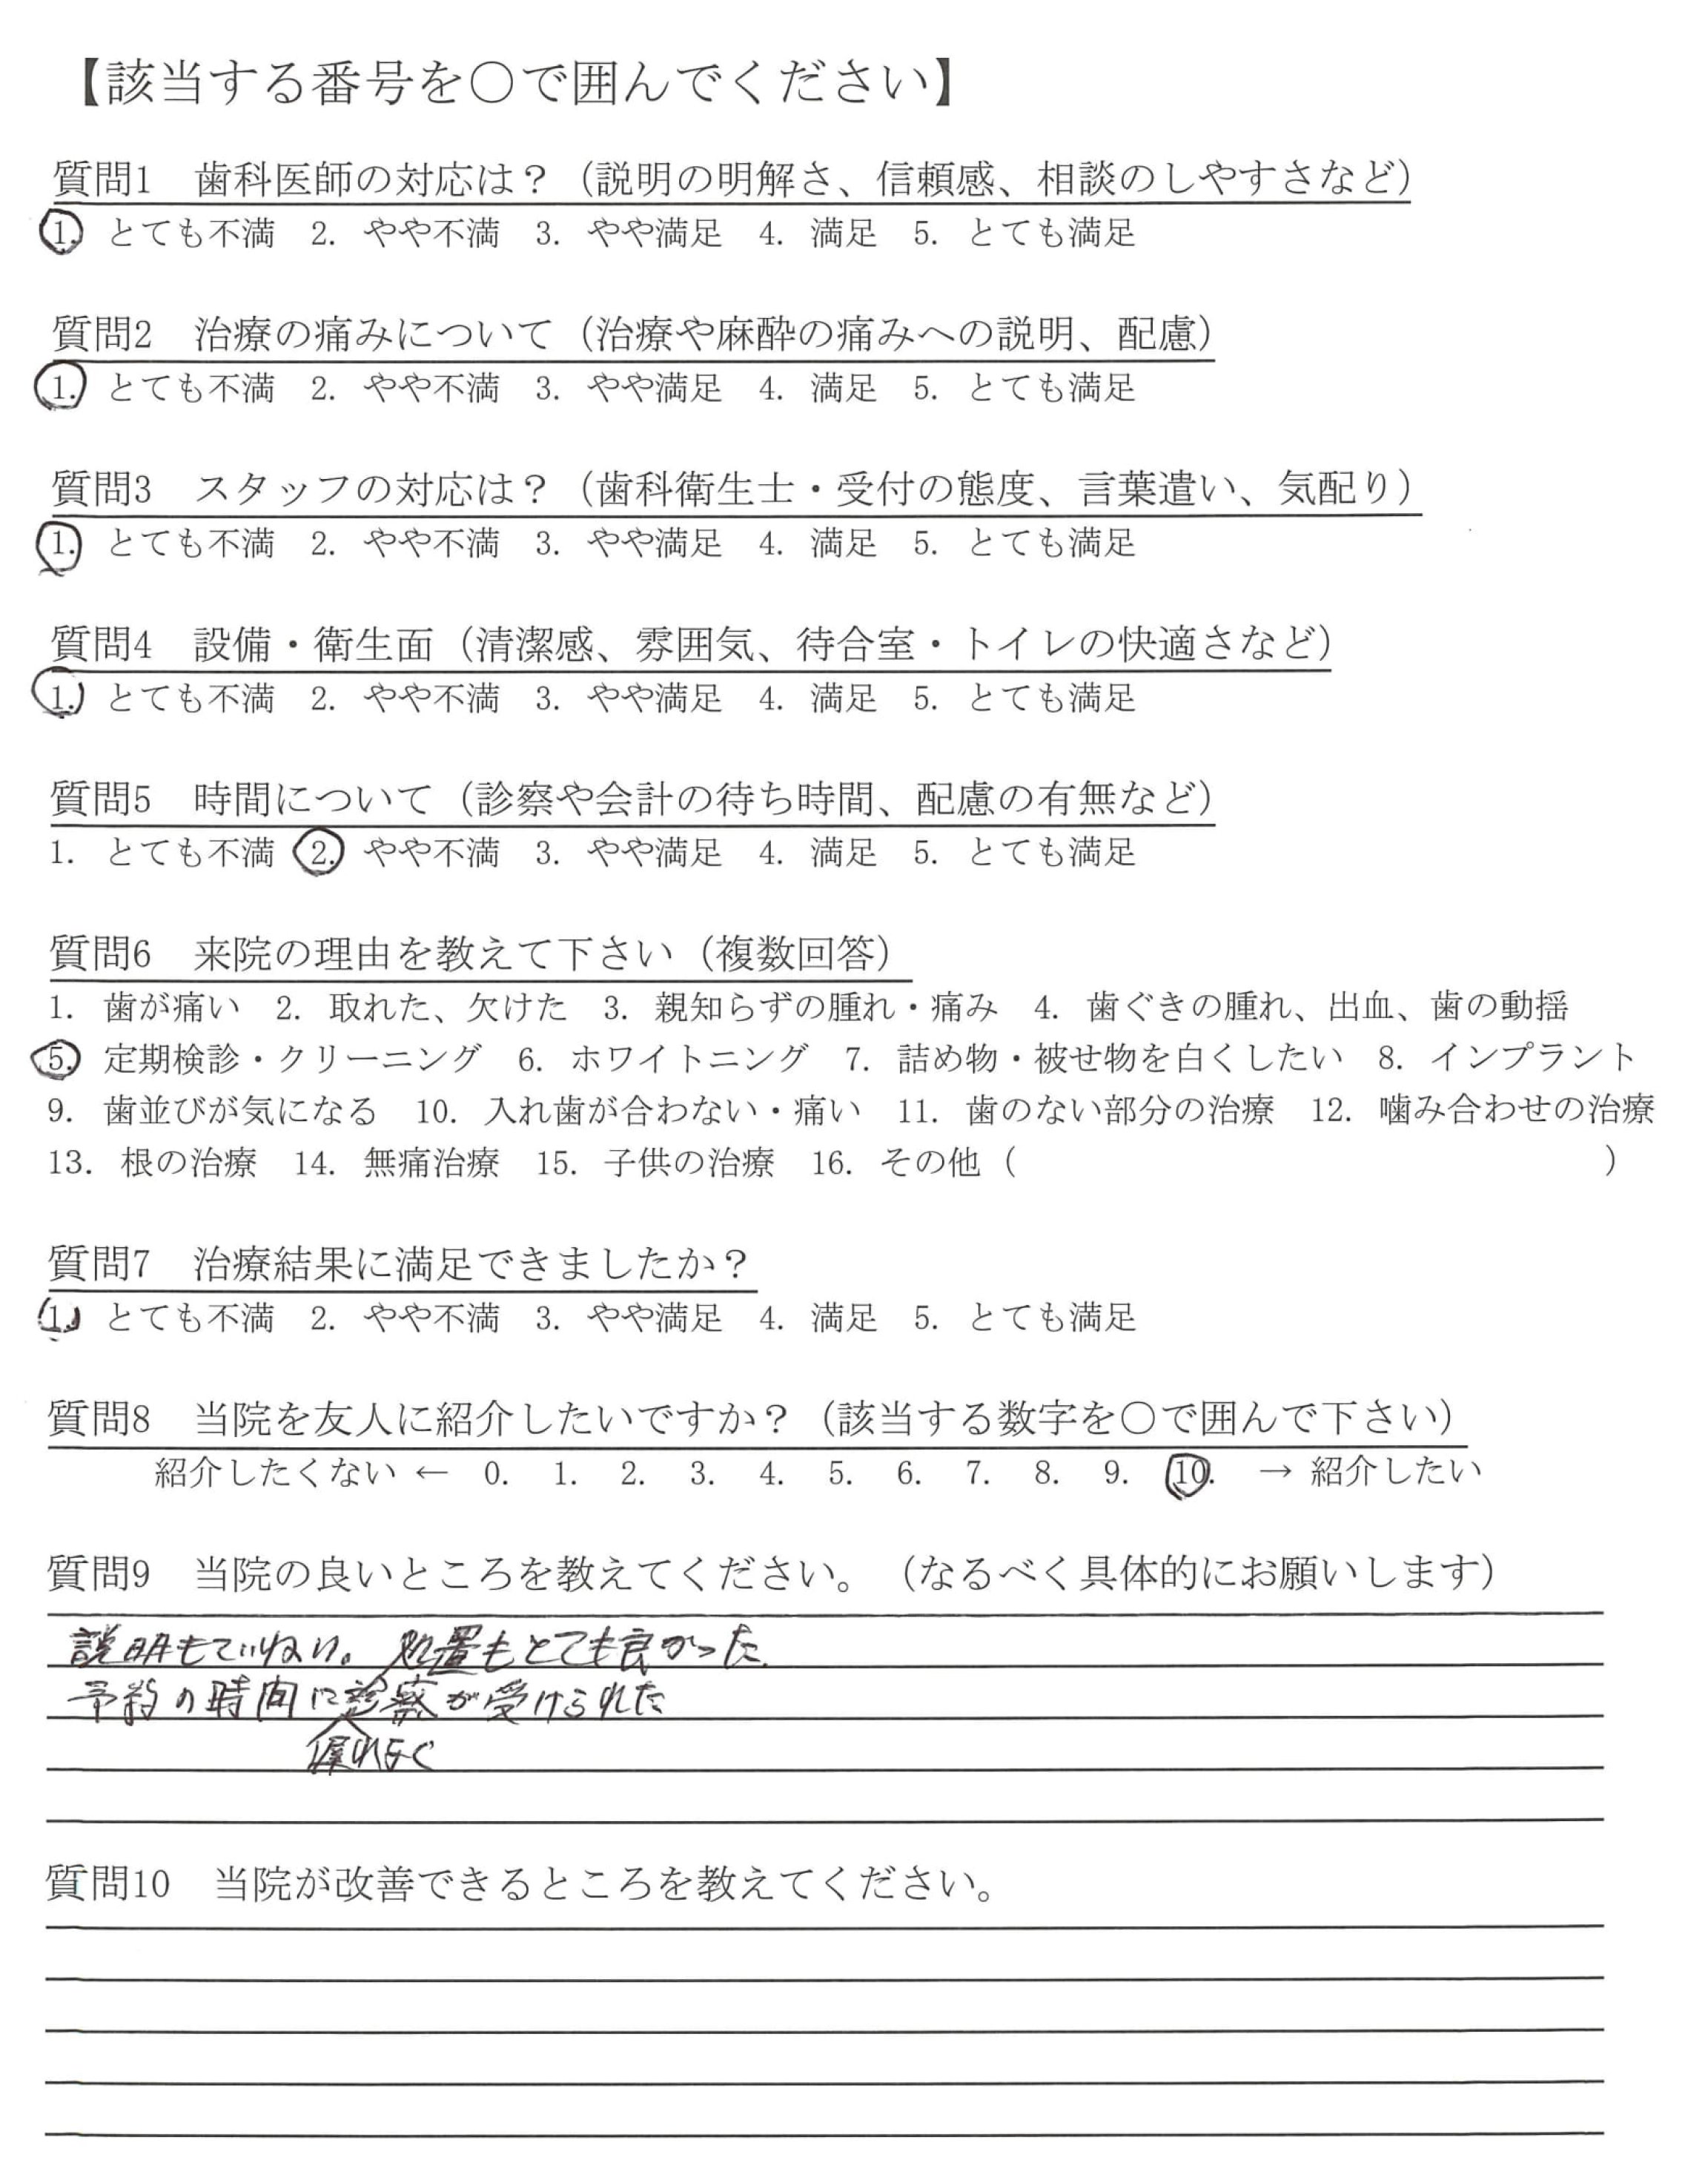 【該当する番号を〇で囲んでください】
質問1　歯科医師の対応は？（説明の明解さ、信頼感、相談のしやすさなど）
1. とても不満　2. やや不満　3. やや満足　4. 満足　5. とても満足
質問2　治療の痛みについて（治療や麻酔の痛みへの説明、配慮）
1. とても不満　2. やや不満　3. やや満足　4. 満足　5. とても満足
質問3　スタッフの対応は？（歯科衛生士・受付の態度、言葉遣い、気配り）
1. とても不満　2. やや不満　3. やや満足　4. 満足　5. とても満足
質問4　設備・衛生面（清潔感、雰囲気、待合室・トイレの快適さなど）
1. とても不満　2. やや不満　3. やや満足　4. 満足　5. とても満足
質問5　時間について（診察や会計の待ち時間、配慮の有無など）
1. とても不満　2. やや不満　3. やや満足　4. 満足　5. とても満足
質問6　来院の理由を教えて下さい（複数回答）
1. 歯が痛い　2. 取れた、欠けた　3. 親知らずの腫れ・痛み　4. 歯ぐきの腫れ、出血、歯の動揺
5. 定期検診・クリーニング　6. ホワイトニング　7. 詰め物・被せ物を白くしたい　8. インプラント
9. 歯並びが気になる　10. 入れ歯が合わない・痛い　11. 歯のない部分の治療　12. 噛み合わせの治療
13. 根の治療　14. 無痛治療　15. 子供の治療　16. その他（　　　　　　　　　　　　　　　　　）
質問7　治療結果に満足できましたか？
1. とても不満　2. やや不満　3. やや満足　4. 満足　5. とても満足
質問8　当院を友人に紹介したいですか？（該当する数字を〇で囲んで下さい）
紹介したくない ← 0. 1. 2. 3. 4. 5. 6. 7. 8. 9. 10. → 紹介したい
質問9　当院の良いところを教えてください。（なるべく具体的にお願いします）
説明もていねい。処置もとても良かった.
予約の時間に診察が受けられた
遅れなく
質問10　当院が改善できるところを教えてください。